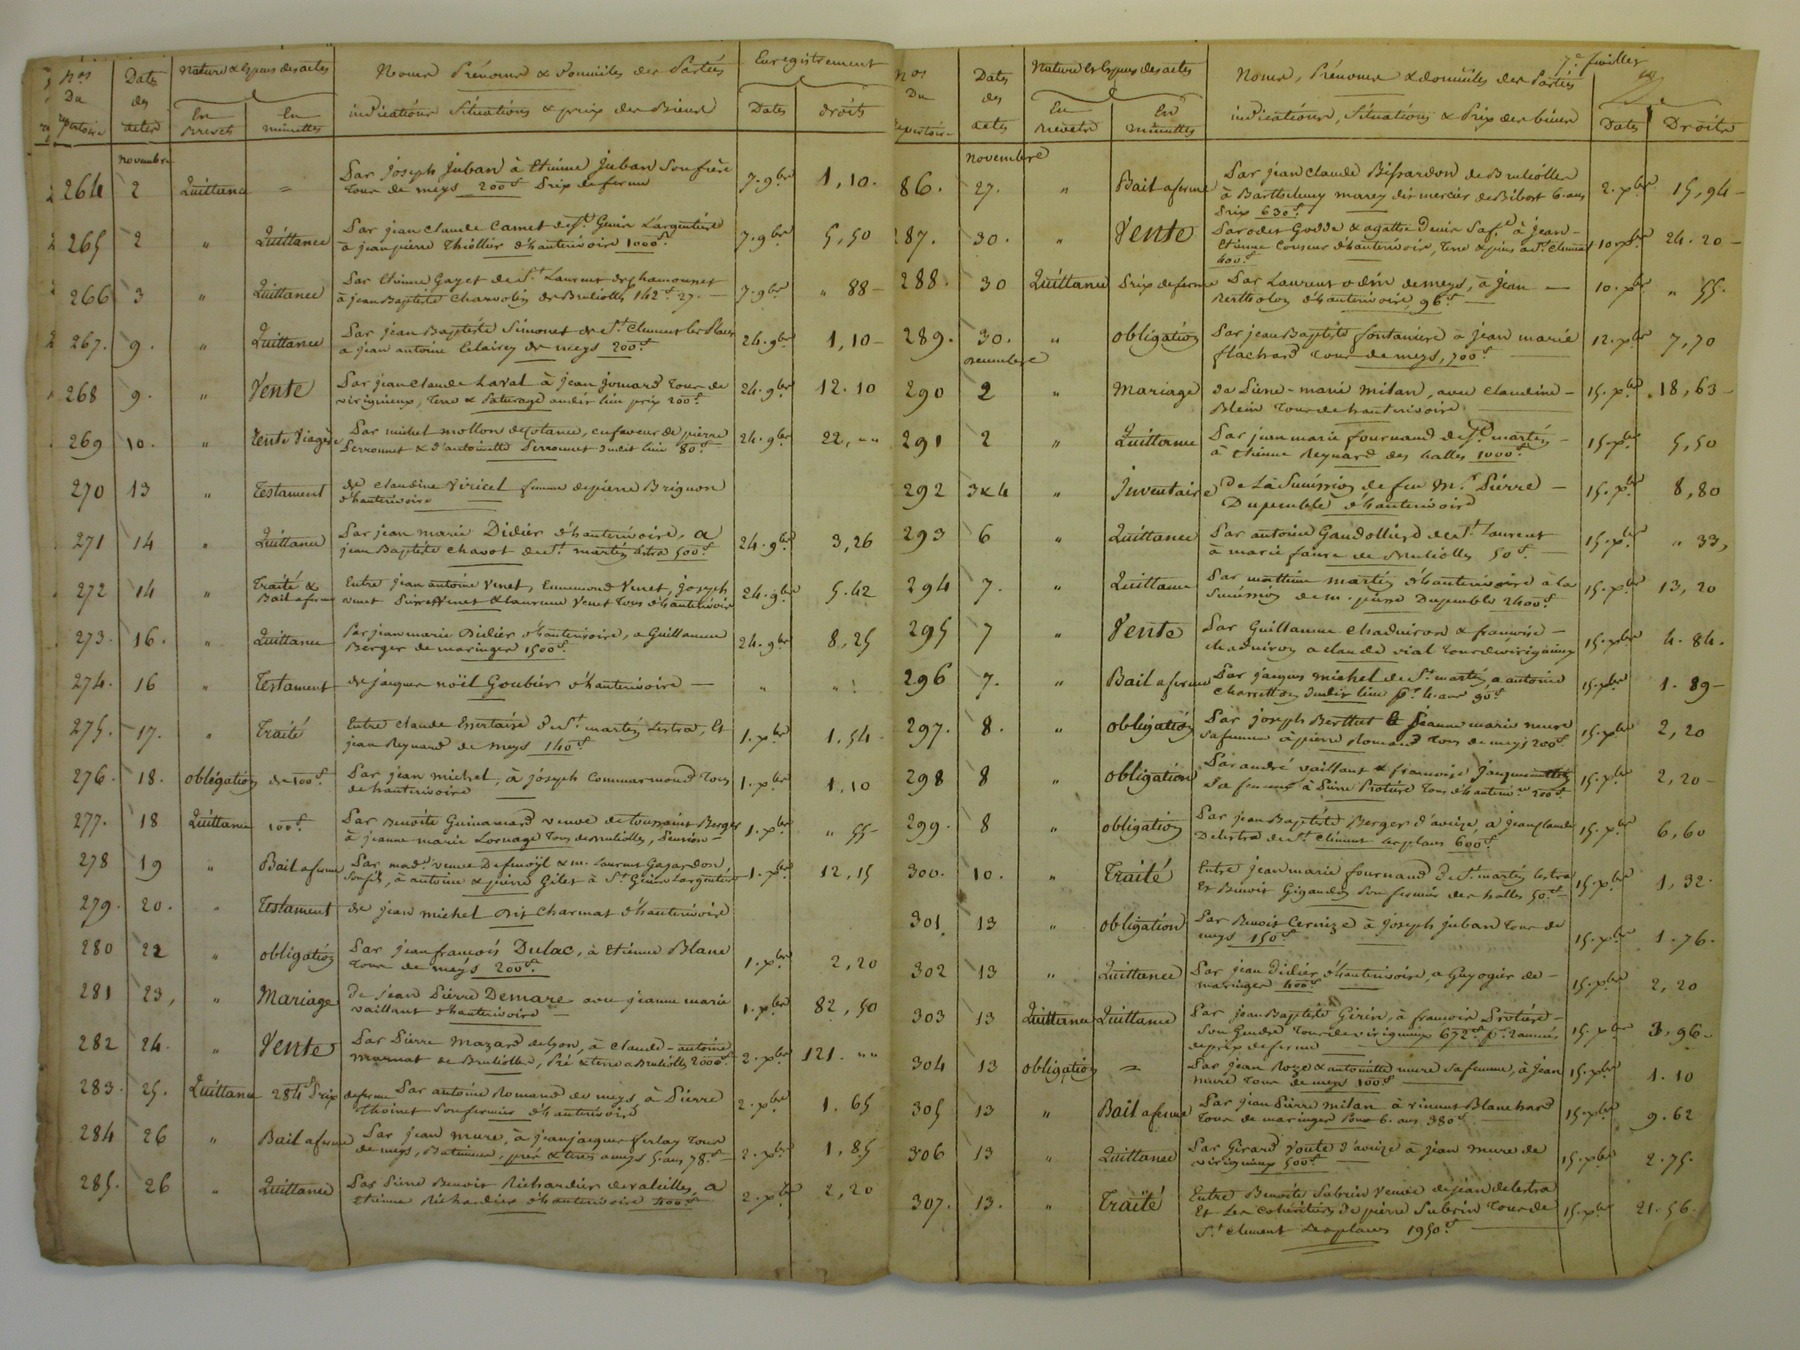 Nos Du répertoire
Dates des actes
Nature & Espèces des actes
En Brevets
En minuttes
Noms Prénoms & Domiciles des Parties
indications Situations & prix des Biens
Enregistrement
Dates
droits
novembre
264 2 Quittance = Par joseph juban à Etienne juban Son frère
tous de meys 200f Prix de ferme 7. 9bre 1, 10.
265 2 " Quittance Par jean claude Camet de St Genis L'argentière
à jean pierre Thiollier d'hauterivoire 1000f 7. 9bre 5, 50
266 3 " Quittance Par Etienne Gayet de St Laurent de Chamousset
à jean Baptiste Charvolin de Brulioles 142f 27. 7. 9bre " 88
267. 9. " Quittance Par jean Baptiste Simonet de St Clement les Places
à jean antoine de meys 200f 24. 9bre 1, 10
268 9. " Vente Par jean claude Laval à jean jomard tous de
virigneux, Terre & Paturage audit lieu prix 200f 24. 9bre 12. 10
269 10. " Vente Viagère Par michel mollon en faveur de pierre
Perronnet & d'antoinette Perronnet dudit lieu 80f 24. 9bre 22, ""
270 13 " Testament de claudine Viricel femme de pierre Brignon
d'hauterivoire
271 14 " Quittance Par jean marie Didier d'hauterivoire, a
jean Baptiste Chavot de St martin Lestra 500f 24. 9bre 3, 26
272 14 " Traité & Bail a ferme Entre jean antoine Venet, Ennemond Venet, joseph
venet Pierre Venet & Laurence Venet Tous d'hauterivoire 24. 9bre 5. 42
273. 16. " Quittance Par jean marie Didier d'hauterivoire, a Guillaume
Berger de maringes 1500f 24. 9bre 8, 25
274. 16 " Testament de jacques noël Goubier d'hauterivoire " "
275. 17. " Traité Entre claude Essertaise de St martin Lestra, Et
jean Reynard de meys 140f 1. xbre 1. 54
276. 18. obligation de 100f Par jean michel, à joseph Commarmond Tous
de hauterivoire 1. xbre 1, 10
277. 18 Quittance 100f Par Benoite Guinamard veuve de toussaint Berger
à jeanne marie Lornage Tous de brulioles, Pension 1. xbre " 55
278 19 " Bail a ferme Par made veuve & m. Laurent Gagardon,
son fils, à antoine & pierre Gilet à St Genis Largentière 1. xbre 12, 15
279. 20. " Testament de jean michel dit Charmat d'hauterivoire
280 22 " obligation Par jean francois Dulac, à Etienne Blanc
tous de meys 200f 1. xbre 2, 20
281 23, " Mariage De jean Pierre Demare avec jeanne marie
vaillant d'hauterivoire 1. xbre 82, 50
282 24. " Vente Par Pierre Mazard de Lyon, à claude-antoine
murnat de Brulioles, Pré & terre a Brulioles 2000f 2. xbre 121. ""
283. 25. Quittance 284f Prix de ferme Par antoine Romand de meys à Pierre
Thoinet son fermier d'hauterivoire 2. xbre 1. 65
284 26 " Bail a ferme Par jean mure, à jean jacques ferlay Tous
de meys, Batiments, prés & terres a meys 5. ans 78f 2. xbre 1, 85
285. 26 " Quittance Par Pierre Benoit Richardier de valeilles, a
Etienne Richardier d'hauterivoire 400f 2. xbre 2, 20
7e feuillet
Nos Du Repertoire
Dates des actes
Nature & Especes des actes
En Brevets
En minuttes
Noms, Prénoms & domiciles des Parties
indications, Situations & Prix des biens
Dates
Droits
novembre
86. 27. " Bail a ferme Par jean claude Bissardon de Brulioles
à Barthelemy marey dit mercier de Bibost 6. ans
Prix 630f 2. xbre 15, 94
287. 30. " Vente Par odet Godde & agathe Denis Sa fe à jean
Etienne Couzeur d'hauterivoire, Terre & pins a St Clement
400f 10 xbre 24. 20
288. 30 Quittance Prix de ferme Par Laurent odin de meys, à jean
Bertholon d'hauterivoire 96f 10. xbre " 55.
289. 30. " obligation Par jean Baptiste fontanière a jean marie
flachard tous de meys, 700f 12. xbre 7, 70
Decembre
290 2 " Mariage de Pierre-marie milan, avec claudine
Blein tous de hauterivoire 15. xbre 18, 63
291 2 " Quittance Par jean marie fournand de St martin
à Etienne Reynard des halles 1000f 15. xbre 5, 50
292 3 & 4 " Inventaire De La Succession de feu Mr Pierre
Dupeuble d'hauterivoire 15. xbre 8, 80
293 6 " Quittance Par antoine Gaudollierd de St Laurent
à marie faure de Brulioles 50f 15. xbre " 33,
294 7. " Quittance Par mathieu martin d'hauterivoire à la
Succession de m. pierre Dupeuble 2400f 15. xbre 13, 20
295 7 " Vente Par Guillaume Chaduiron & francoise
chaduiron a claude vial tous de virigneux 15. xbre 4. 84.
296 7. " Bail a ferme Par jacques michel de St martin a antoine
Charretton dudit lieu pr 4. ans 90f 15. xbre 1. 89
297. 8. " obligation Par joseph Berthet & jeanne marie mure
sa femme à pierre Romand tous de meys 200f 15. xbre 2, 20
298 8 " obligation Par andré vaillant & francoise
Sa femme à Pierre Protière tous d'hauterivre 200f 15. xbre 2, 20
299. 8 " obligation Par jean Baptiste Berger d'aveize, a jean claude
Delestra de St Clement les places 600f 15. xbre 6, 60
300. 10. " Traité Entre jean marie fournand de St martin lestra
Et Benoit Gigandon Son fermier des halles 50f 15. xbre 1, 32.
301. 13 " obligation Par Benoit Cernize à joseph juban tous de
meys 150f 15. xbre 1. 76.
302 13 " Quittance Par jean Didier d'hauterivoire, a Guy ogier de
maringes 400f 15. xbre 2, 20
303 13 Quittance Quittance Par jean Baptiste Girin, à francois Protière
son Gendre tous de virigneux 672f pr 2 années
de prix de ferme 15. xbre 3, 96
304 13 obligation = Par jean Roze & antoinette mure sa femme, à jean
mure tous de meys 100f 15. xbre 1. 10
305 13 " Bail a ferme Par jean Pierre milan à vincent Blanchard
tous de maringes Pour 6. ans 380f 15. xbre 9. 62
306 13 " Quittance Par Girard Voute d'aveize à jean mure de
virigneux 500f 15. xbre 2. 75.
307. 13. " Traité Entre Benoite Subrin Veuve de jean delestra
Et Les cohéritiers de pierre Subrin tous de
St Clement Les places 1950f 15. xbre 21. 56.